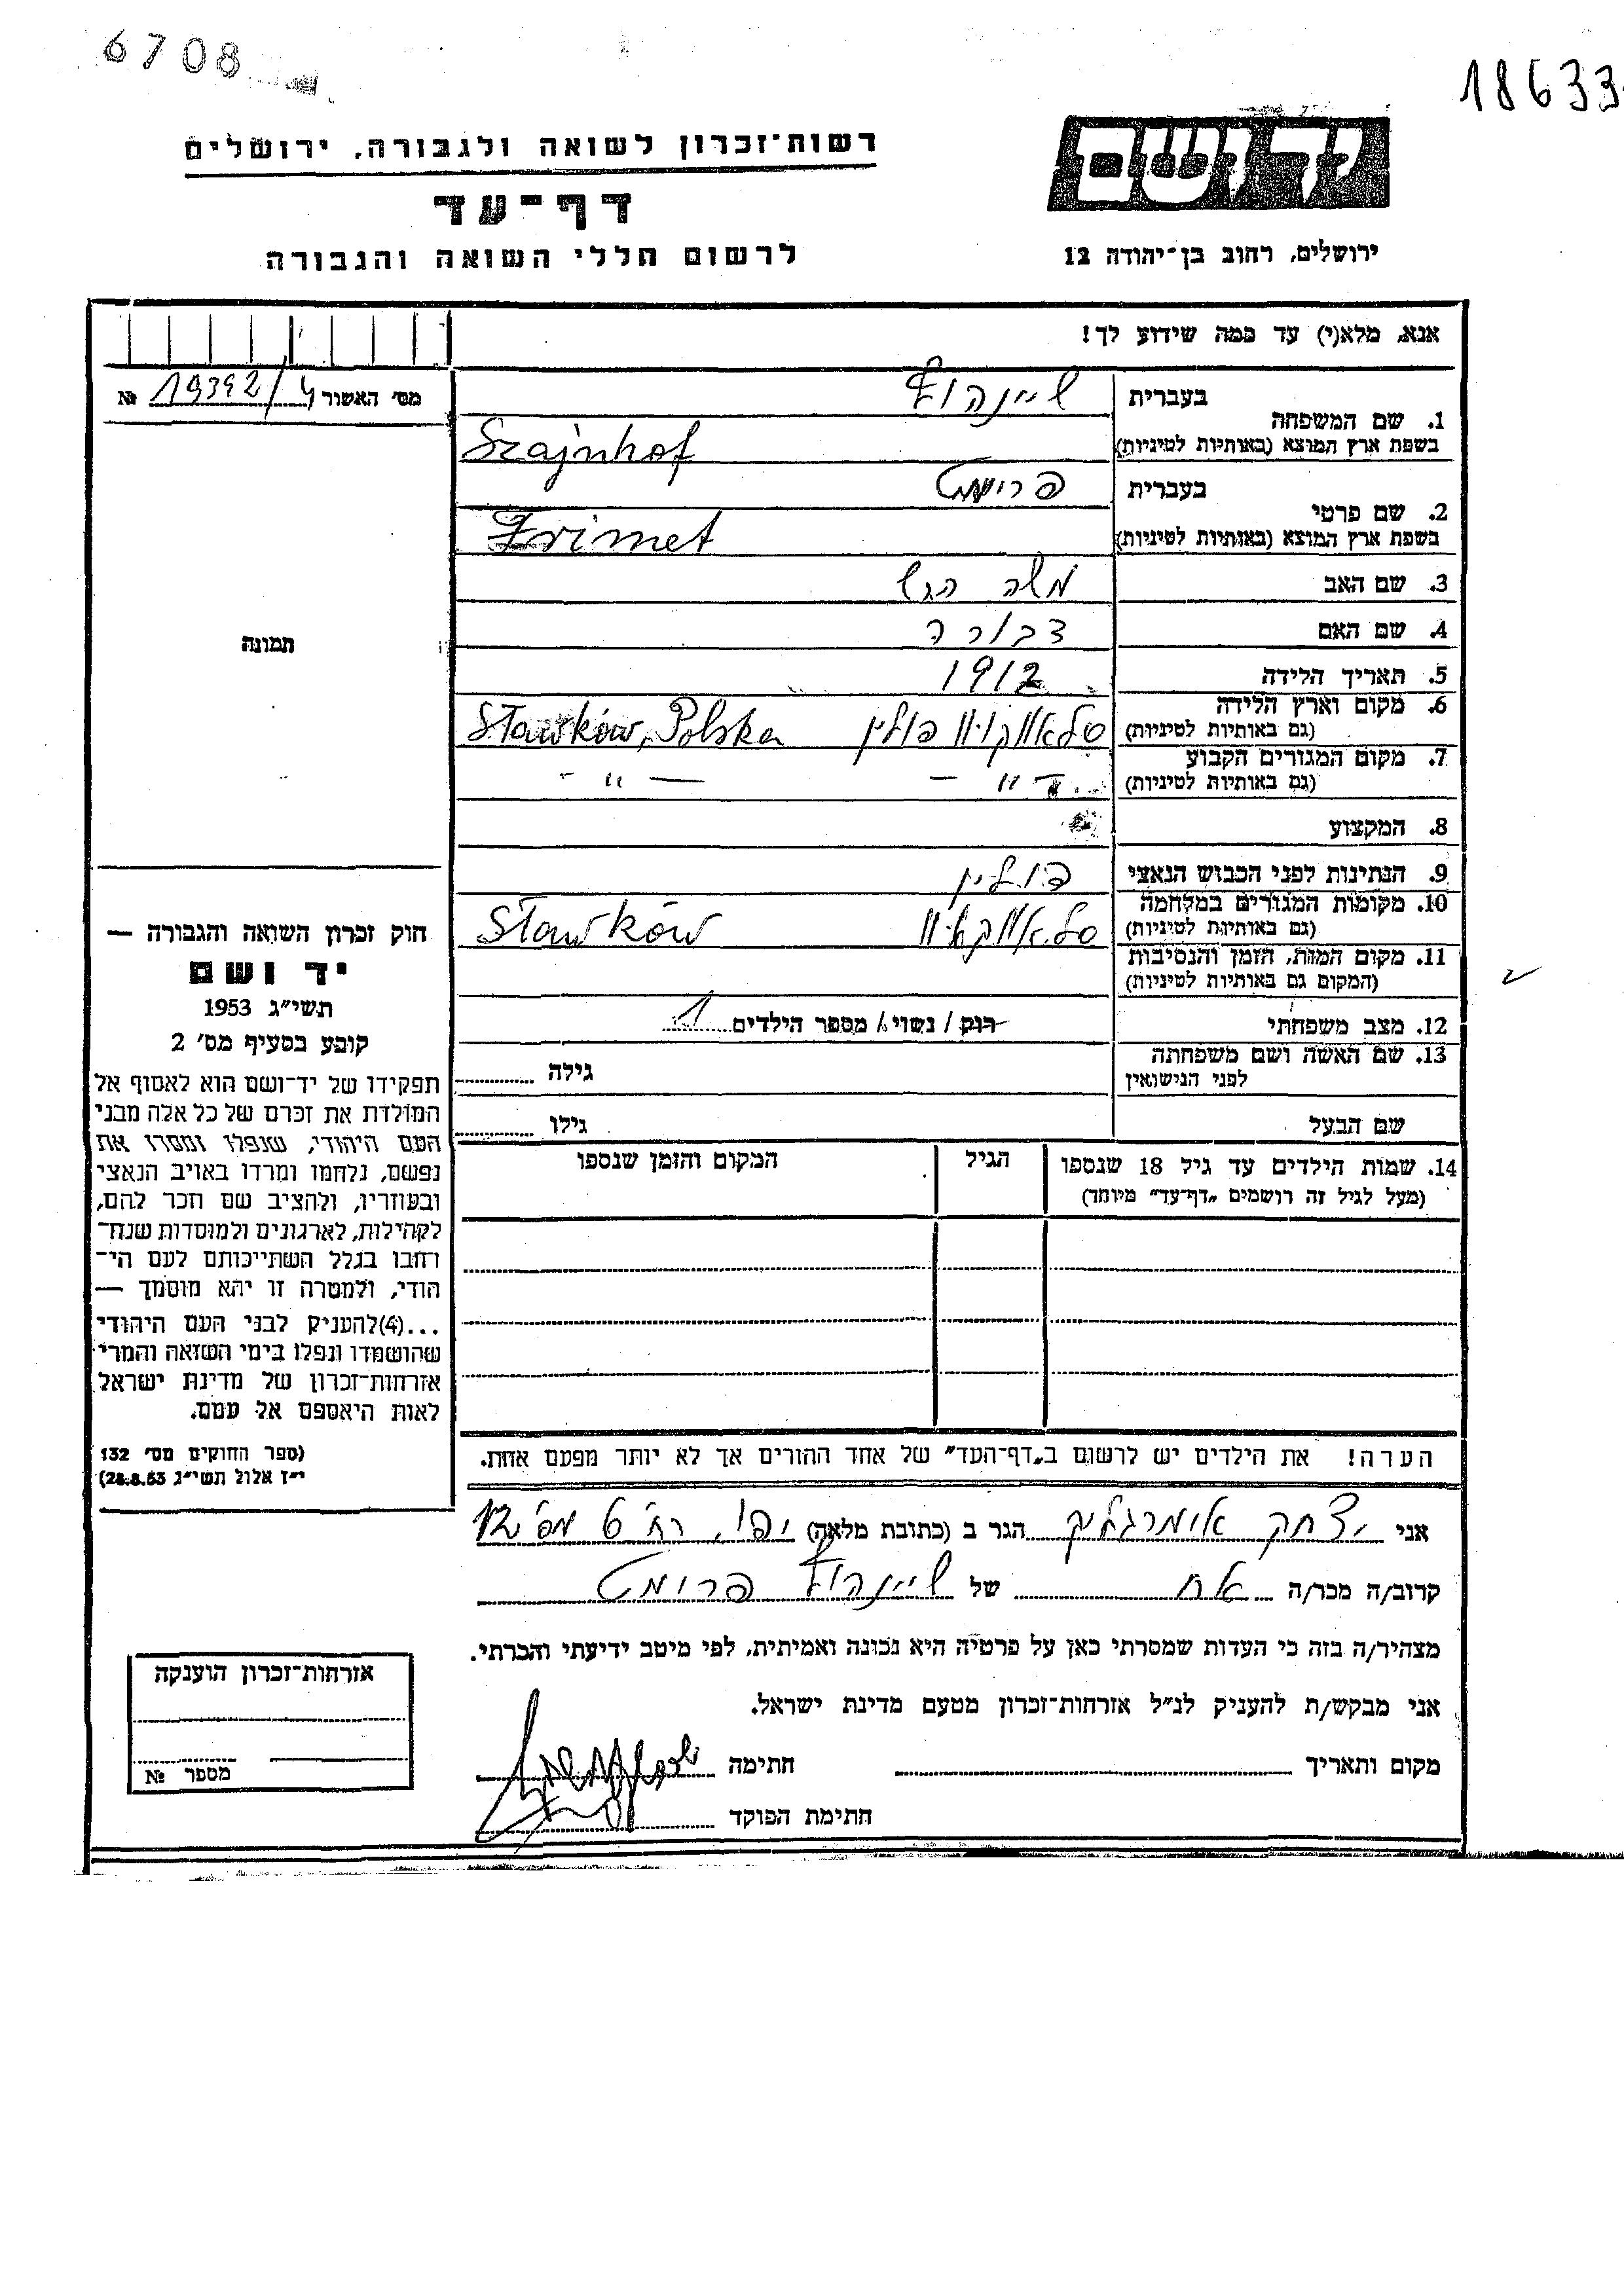 6708
18633
יד ושם
רשות־זכרון לשואה ולגבורה, ירושלים
דף־עד
לרשום חללי השואה והגבורה
ירושלים, רחוב בן־יהודה 12
אנא, מלא(י) עד כמה שידוע לך!
מס׳ האשור 19392/4 №
1. שם המשפחה
בעברית שיינהוף
בשפת ארץ המוצא (באותיות לטיניות) Szajnhof
2. שם פרטי
בעברית פרימט
בשפת ארץ המוצא (באותיות לטיניות) Frimet
3. שם האב משה הרש
4. שם האם דבורה
5. תאריך הלידה 1912
6. מקום וארץ הלידה
(גם באותיות לטיניות) סלאווקוב פולין Sławków, Polska
7. מקום המגורים הקבוע
(גם באותיות לטיניות) — " — — " —
8. המקצוע
9. הנתינות לפני הכבוש הנאצי פולין
10. מקומות המגורים במלחמה
(גם באותיות לטיניות) Sławków
11. מקום המות, הזמן והנסיבות
(המקום גם באותיות לטיניות)
12. מצב משפחתי רוק / נשוי / מספר הילדים 1
13. שם האשה ושם משפחתה
לפני הנישואין גילה
שם הבעל גילו
14. שמות הילדים עד גיל 18 שנספו
(מעל לגיל זה רושמים „דף־עד" מיוחד)
הגיל
המקום והזמן שנספו
הערה! את הילדים יש לרשום ב„דף־העד" של אחד ההורים אך לא יותר מפעם אחת.
תמונה
חוק זכרון השואה והגבורה —
יד ושם
תשי״ג 1953
קובע בסעיף מס׳ 2
תפקידו של יד־ושם הוא לאסוף אל
המולדת את זכרם של כל אלה מבני
העם היהודי, שנפלו ומסרו את
נפשם, נלחמו ומרדו באויב הנאצי
ובעוזריו, ולהציב שם וזכר להם,
לקהילות, לארגונים ולמוסדות שנח־
רבו בגלל השתייכותם לעם הי־
הודי, ולמטרה זו יהא מוסמך —
...(4)להעניק לבני העם היהודי
שהושמדו ונפלו בימי השואה והמרי
אזרחות־זכרון של מדינת ישראל
לאות היאספם אל עמם.
(ספר החוקים מס׳ 132
י״ז אלול תשי״ג 28.8.53)
אני יצחק הגר ב (כתובת מלאה) יפו, רח׳ 6 מס׳ 12
קרוב/ה מכר/ה אח של שיינהוף פרומט
מצהיר/ה בזה כי העדות שמסרתי כאן על פרטיה היא נכונה ואמיתית, לפי מיטב ידיעתי והכרתי.
אני מבקש/ת להעניק לנ״ל אזרחות־זכרון מטעם מדינת ישראל.
מקום ותאריך חתימה
חתימת הפוקד
אזרחות־זכרון הוענקה
מספר №